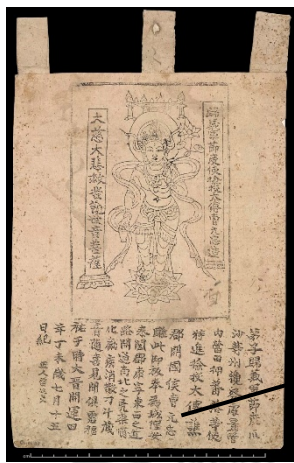 歸義軍節度使檢校太傅曹元忠造
大慈大悲救苦觀世音菩薩
弟子歸義軍節度瓜
沙等州觀察處置管
內營田押蕃落等使
特進檢校太傅譙
郡開國侯曹元忠
雕此印板奉為城隍安
泰闔郡康寧東西之道
路開通南北之凶渠順
化癘疾消散刁斗藏
音隨喜見聞俱霑福
祐于時大晉開運四
年丁未歲七月十五
日紀 匠人